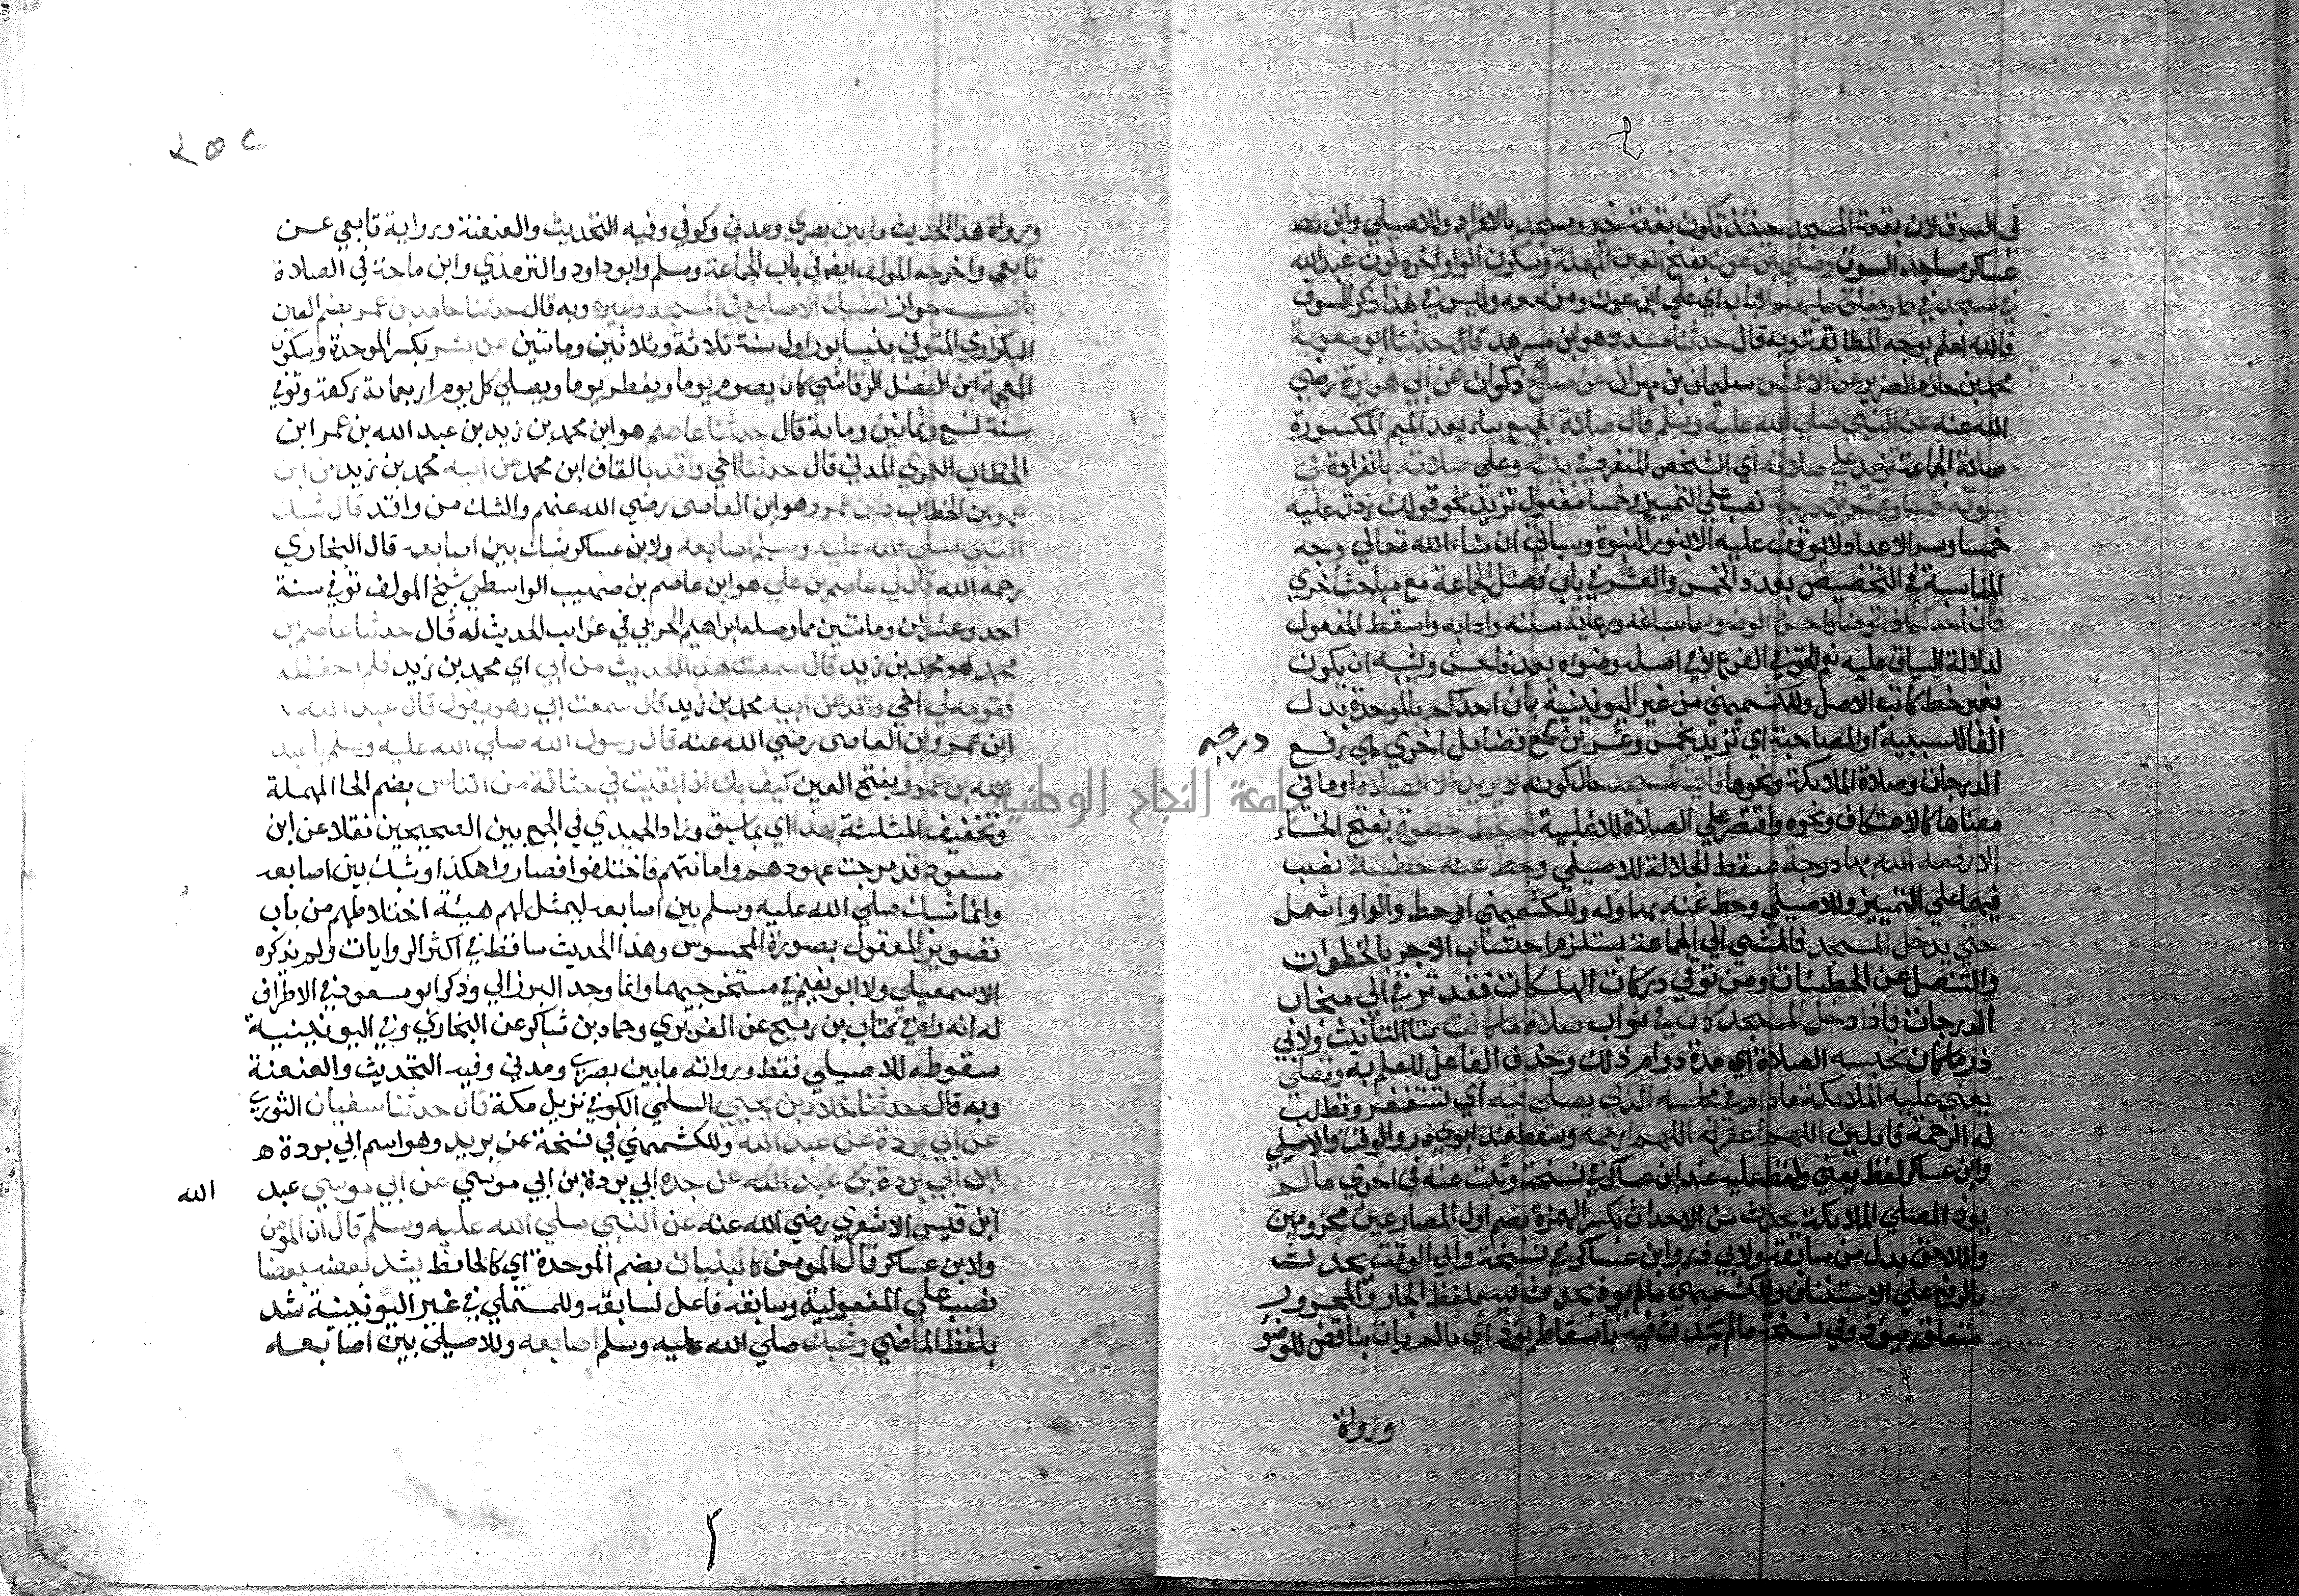 في السوق لان بقعة المسجد حينئذ تكون بقعة خير ومسجد بالافراد وللاصيلي وابن
عساكر مساجد السوق وصلي ابن عون بفتح العين المهملة وسكون الواو اخره نون عبدالله
في مسجد في دار يغلق عليهم الباب اي علي ابن عون ومن معه وليس في هذا ذكر السوق
فالله اعلم بوجه المطابقة وبه قال حدثنا مسدد هو ابن مسرهد قال حدثنا ابو معوية
محمد بن حازم الضرير عن الاعمش سليمان بن مهران عن صالح ذكوان عن ابي هريرة رضي
الله عنه عن النبي صلي الله عليه وسلم قال صلاة الجميع بياء بعد الميم المكسورة
صلاة الجماعة تزيد علي صلاته اي الشخص المنفرد في بيته وعلي صلاته بانفراده في
سوقه خمسا وعشرين درجة نصب علي التمييز وخمسا مفعول تزيد نحو قولك زدت عليه
خمسا وسر الاعداد لا يوقف عليه الا بنور النبوة وسياتي ان شاء الله تعالي وجه
المناسبة في التخصيص بعدد الخمس والعشر في باب فضل الجماعة مع مباحث اخري
فان احدكم اذا توضا فاحسن الوضوء باسباغه ورعاية سننه وادابه واسقط المفعول
لدلالة السياق عليه نعم الحق في الفرع لا في اصله وضوءه بعد فاحسن ويشبه ان يكون
بغير خط كاتب الاصل وللكشميهني من غير اليونينية بان احدكم بالموحدة بدل
الفا للسببية او للمصاحبة اي تزيد بخمس وعشرين مع فضايل اخري هي رفع
درجه
الدرجات وصلاة الملايكة ونحوها فاتي المسجد حال كونه لا يريد الا الصلاة او ما في
معناها كالاعتكاف ونحوه واقتصر علي الصلاة للاغلبية لم يخط خطوة بفتح الخاء
الا رفعه الله بها درجة سقط الجلالة للاصيلي وحط عنه خطيئة نصب
فيهما علي التمييز وللاصيلي وحط عنه بها وله وللكشميهني او حط والواو اشمل
حتي يدخل المسجد فالمشي الي الجماعة يستلزم احتساب الاجر بالخطوات
والتنصل عن الخطيئات ومن توقي دركات الهلكات فقد ترقي الي منجاب
الدرجات فاذا دخل المسجد كان في ثواب صلاة ما كانت بتا التانيث ولابي
ذر ما كان تحبسه الصلاة اي مدة دوام ذلك وحذف الفاعل للعلم به وتصلي
يعني عليه الملايكة ما دام في مجلسه الذي يصلي فيه اي تستغفر وتطلب
له الرحمة قايلين اللهم اغفر له اللهم ارحمه وسقط عند ابوي ذر والوقت والاصيلي
وابن عساكر لفظ يعني ولفظ عليه عند ابن عساكر في نسخة وثبت عنه في اخري ما لم
يوذ المصلي الملايكة يحدث من الاحداث بكسر الهمزة بضم اول المضارعين مجزومين
واللاحق بدل من سابقه ولابي ذر وابن عساكر في نسخة وابي الوقت يحدث
بالرفع علي الاستئناف وللكشميهني ما لم يوذ بحدث فيه بلفظ الجار والمجرور
متعلق بيوذ وفي نسخة ما لم يحدث فيه باسقاط يوذ اي ما لم يات بناقض للوضو
ورواة
٢٥٢
ورواة هذا الحديث ما بين بصري ومدني وكوفي وفيه التحديث والعنعنة ورواية تابعي عن
تابعي واخرجه المولف ايضا في باب الجماعة ومسلم وابو داود والترمذي وابن ماجة في الصلاة
باب جواز تشبيك الاصابع في المسجد وغيره وبه قال حدثنا حامد بن عمر بضم العين
البكراوي المتوفي بنيسابور اول سنة ثلاثة وثلاثين ومائتين عن بشر بكسر الموحدة وسكون
المعجمة ابن الفضل الرقاشي كان يصوم يوما ويفطر يوما ويصلي كل يوم اربعماية ركعة وتوفي
سنة تسع وثمانين وماية قال حدثنا عاصم هو ابن محمد بن زيد بن عبد الله بن عمر ابن
الخطاب العمري المدني قال حدثنا اخي واقد بالقاف ابن محمد عن ابيه محمد بن زيد عن ابن
عمر بن الخطاب وابن عمرو هو ابن العاصي رضي الله عنهم والشك من واقد قال شبك
النبي صلي الله عليه وسلم اصابعه ولابن عساكر شبك بين اصابعه قال البخاري
رحمه الله قال لي عاصم بن علي هو ابن عاصم بن صهيب الواسطي شيخ المولف توفي سنة
احد وعشرين ومائتين مما وصله ابراهيم الحربي في غرايب الحديث له قال حدثنا عاصم بن
محمد هو محمد بن زيد قال سمعت هذا الحديث من ابي اي محمد بن زيد فلم احفظه
فقومه لي اخي واقد عن ابيه محمد بن زيد قال سمعت ابي وهو يقول قال عبد الله
ابن عمرو بن العاصي رضي الله عنه قال رسول الله صلي الله عليه وسلم يا عبد
الله بن عمرو بفتح العين كيف بك اذا بقيت في حثالة من الناس بضم الحا المهملة
وتخفيف المثلثة بهذا اي بما سبق وزاد الحميدي في الجمع بين الصحيحين نقلا عن ابن
مسعود قد مرجت عهودهم واماناتهم فاختلفوا فصاروا هكذا وشبك بين اصابعه
وانما شبك صلي الله عليه وسلم بين اصابعه ليمثل لهم هيئة اختلاطهم من باب
تصوير المعقول بصورة المحسوس وهذا الحديث ساقط في اكثر الروايات ولم يذكره
الاسمعيلي ولا ابو نعيم في مستخرجيهما وانما وجد البرزالي وذكر ابو مسعود في الاطراف
له انه راه في كتاب بن رميح عن الفربري وحماد بن شاكر عن البخاري وفي اليونينية
سقوطه للاصيلي فقط ورواته ما بين بصري ومدني وفيه التحديث والعنعنة
وبه قال حدثنا خلاد بن يحيي السلمي الكوفي نزيل مكة قال حدثنا سفيان الثوري
عن ابي بردة عن عبد الله وللكشميهني في نسخة عن بريد وهو اسم ابي بردة
ابن ابي بردة بن عبد الله عن جده ابي بردة بن ابي موسي عن ابي موسي عبد
الله
ابن قيس الاشعري رضي الله عنه عن النبي صلي الله عليه وسلم قال ان المومن
ولابن عساكر قال المومن كالبنيان بضم الموحدة اي كالحائط يشد بعضه بعضا
نصب علي المفعولية وسابقه فاعل لسابقه وللمستملي في غير اليونينية شد
بلفظ الماضي وشبك صلي الله عليه وسلم اصابعه وللاصيلي بين اصابعه
جامعة النجاح الوطنية